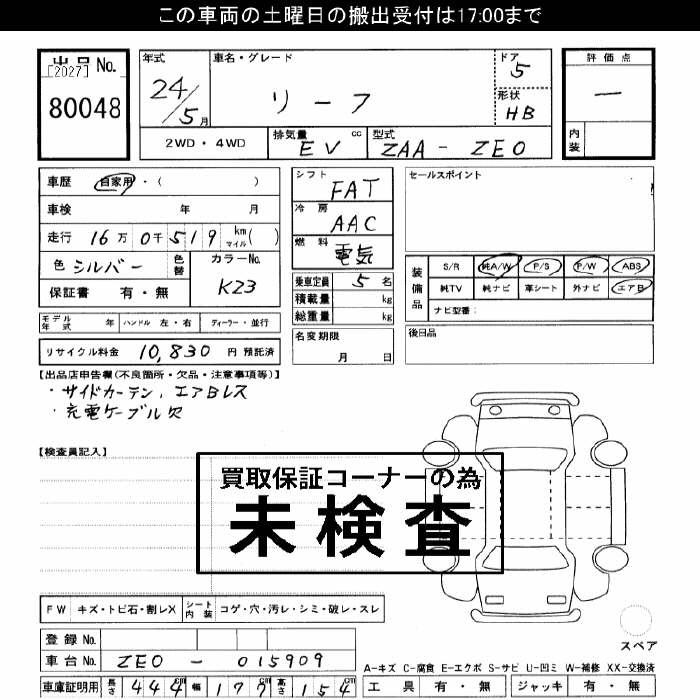 この車両の土曜日の搬出受付は17:00まで
出品No.
[2027]
80048
年式
24/5月
車名・グレード
リーフ
ドア
5
形状
HB
評価点
ー
内装
2WD・4WD
排気量 cc
EV
型式
ZAA-ZE0
車歴 自家用・( )
車検 年 月
走行 16万0千519 km マイル( )
色 シルバー
色替
カラーNo.
K23
保証書 有・無
モデル年式 年 ハンドル 左・右 ディーラー・並行
リサイクル料金 10,830 円 預託済
シフト
FAT
冷房
AAC
燃料
電気
乗車定員 5 名
積載量 kg
総重量 kg
名変期限
月 日
セールスポイント
装備品
S/R 純A/W P/S P/W ABS
純TV 純ナビ 革シート 外ナビ エアB
ナビ型番:
後日品
【出品店申告欄(不良箇所・欠品・注意事項等)】
・サイドカーテン、エアBレス
・充電ケーブル欠
【検査員記入】
買取保証コーナーの為
未検査
FW キズ・トビ石・割レX シート内装 コゲ・穴・汚レ・シミ・破レ・スレ
登録No.
車台No. ZE0-015909
車庫証明用 長さ 444cm 幅 177cm 高さ 154cm
スペア
A-キズ C-腐食 E-エクボ S-サビ U-凹ミ W-補修 XX-交換済
工具 有・無 ジャッキ 有・無